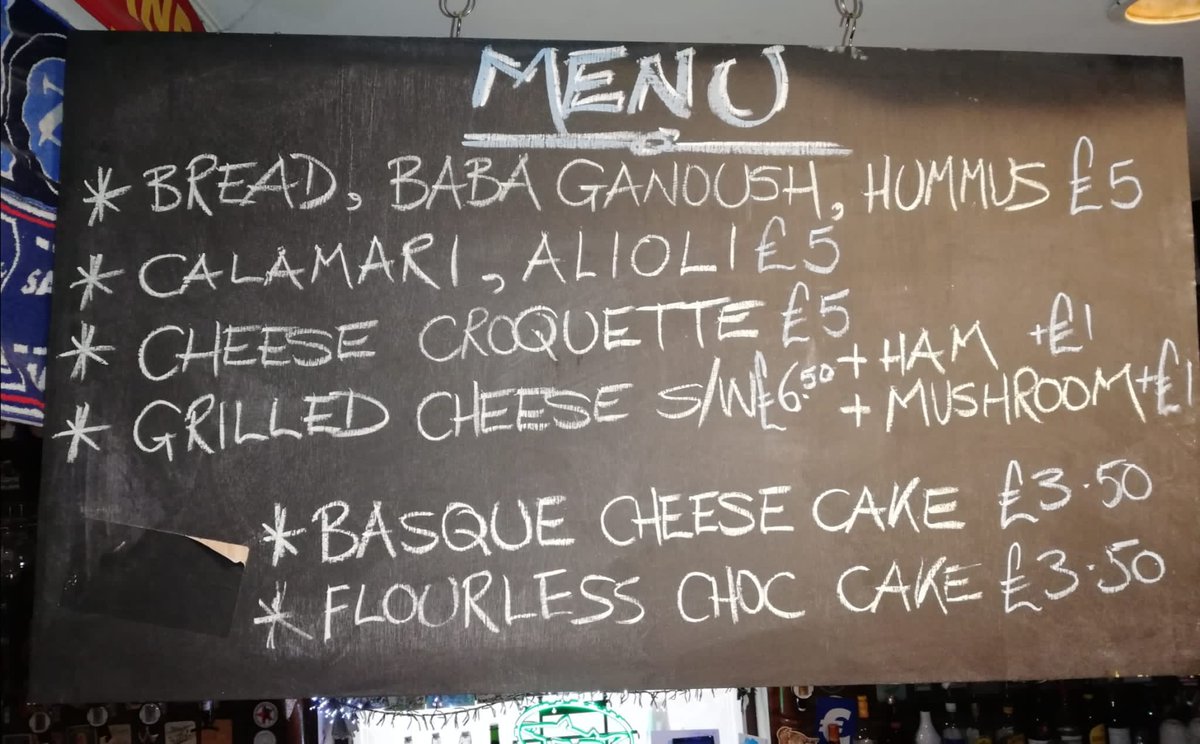 MENU
* BREAD, BABA GANOUSH, HUMMUS £5
* CALAMARI, ALIOLI £5
* CHEESE CROQUETTE £5
* GRILLED CHEESE S/W £6.50 + HAM +£1
+ MUSHROOM +£1
* BASQUE CHEESE CAKE £3.50
* FLOURLESS CHOC CAKE £3.50